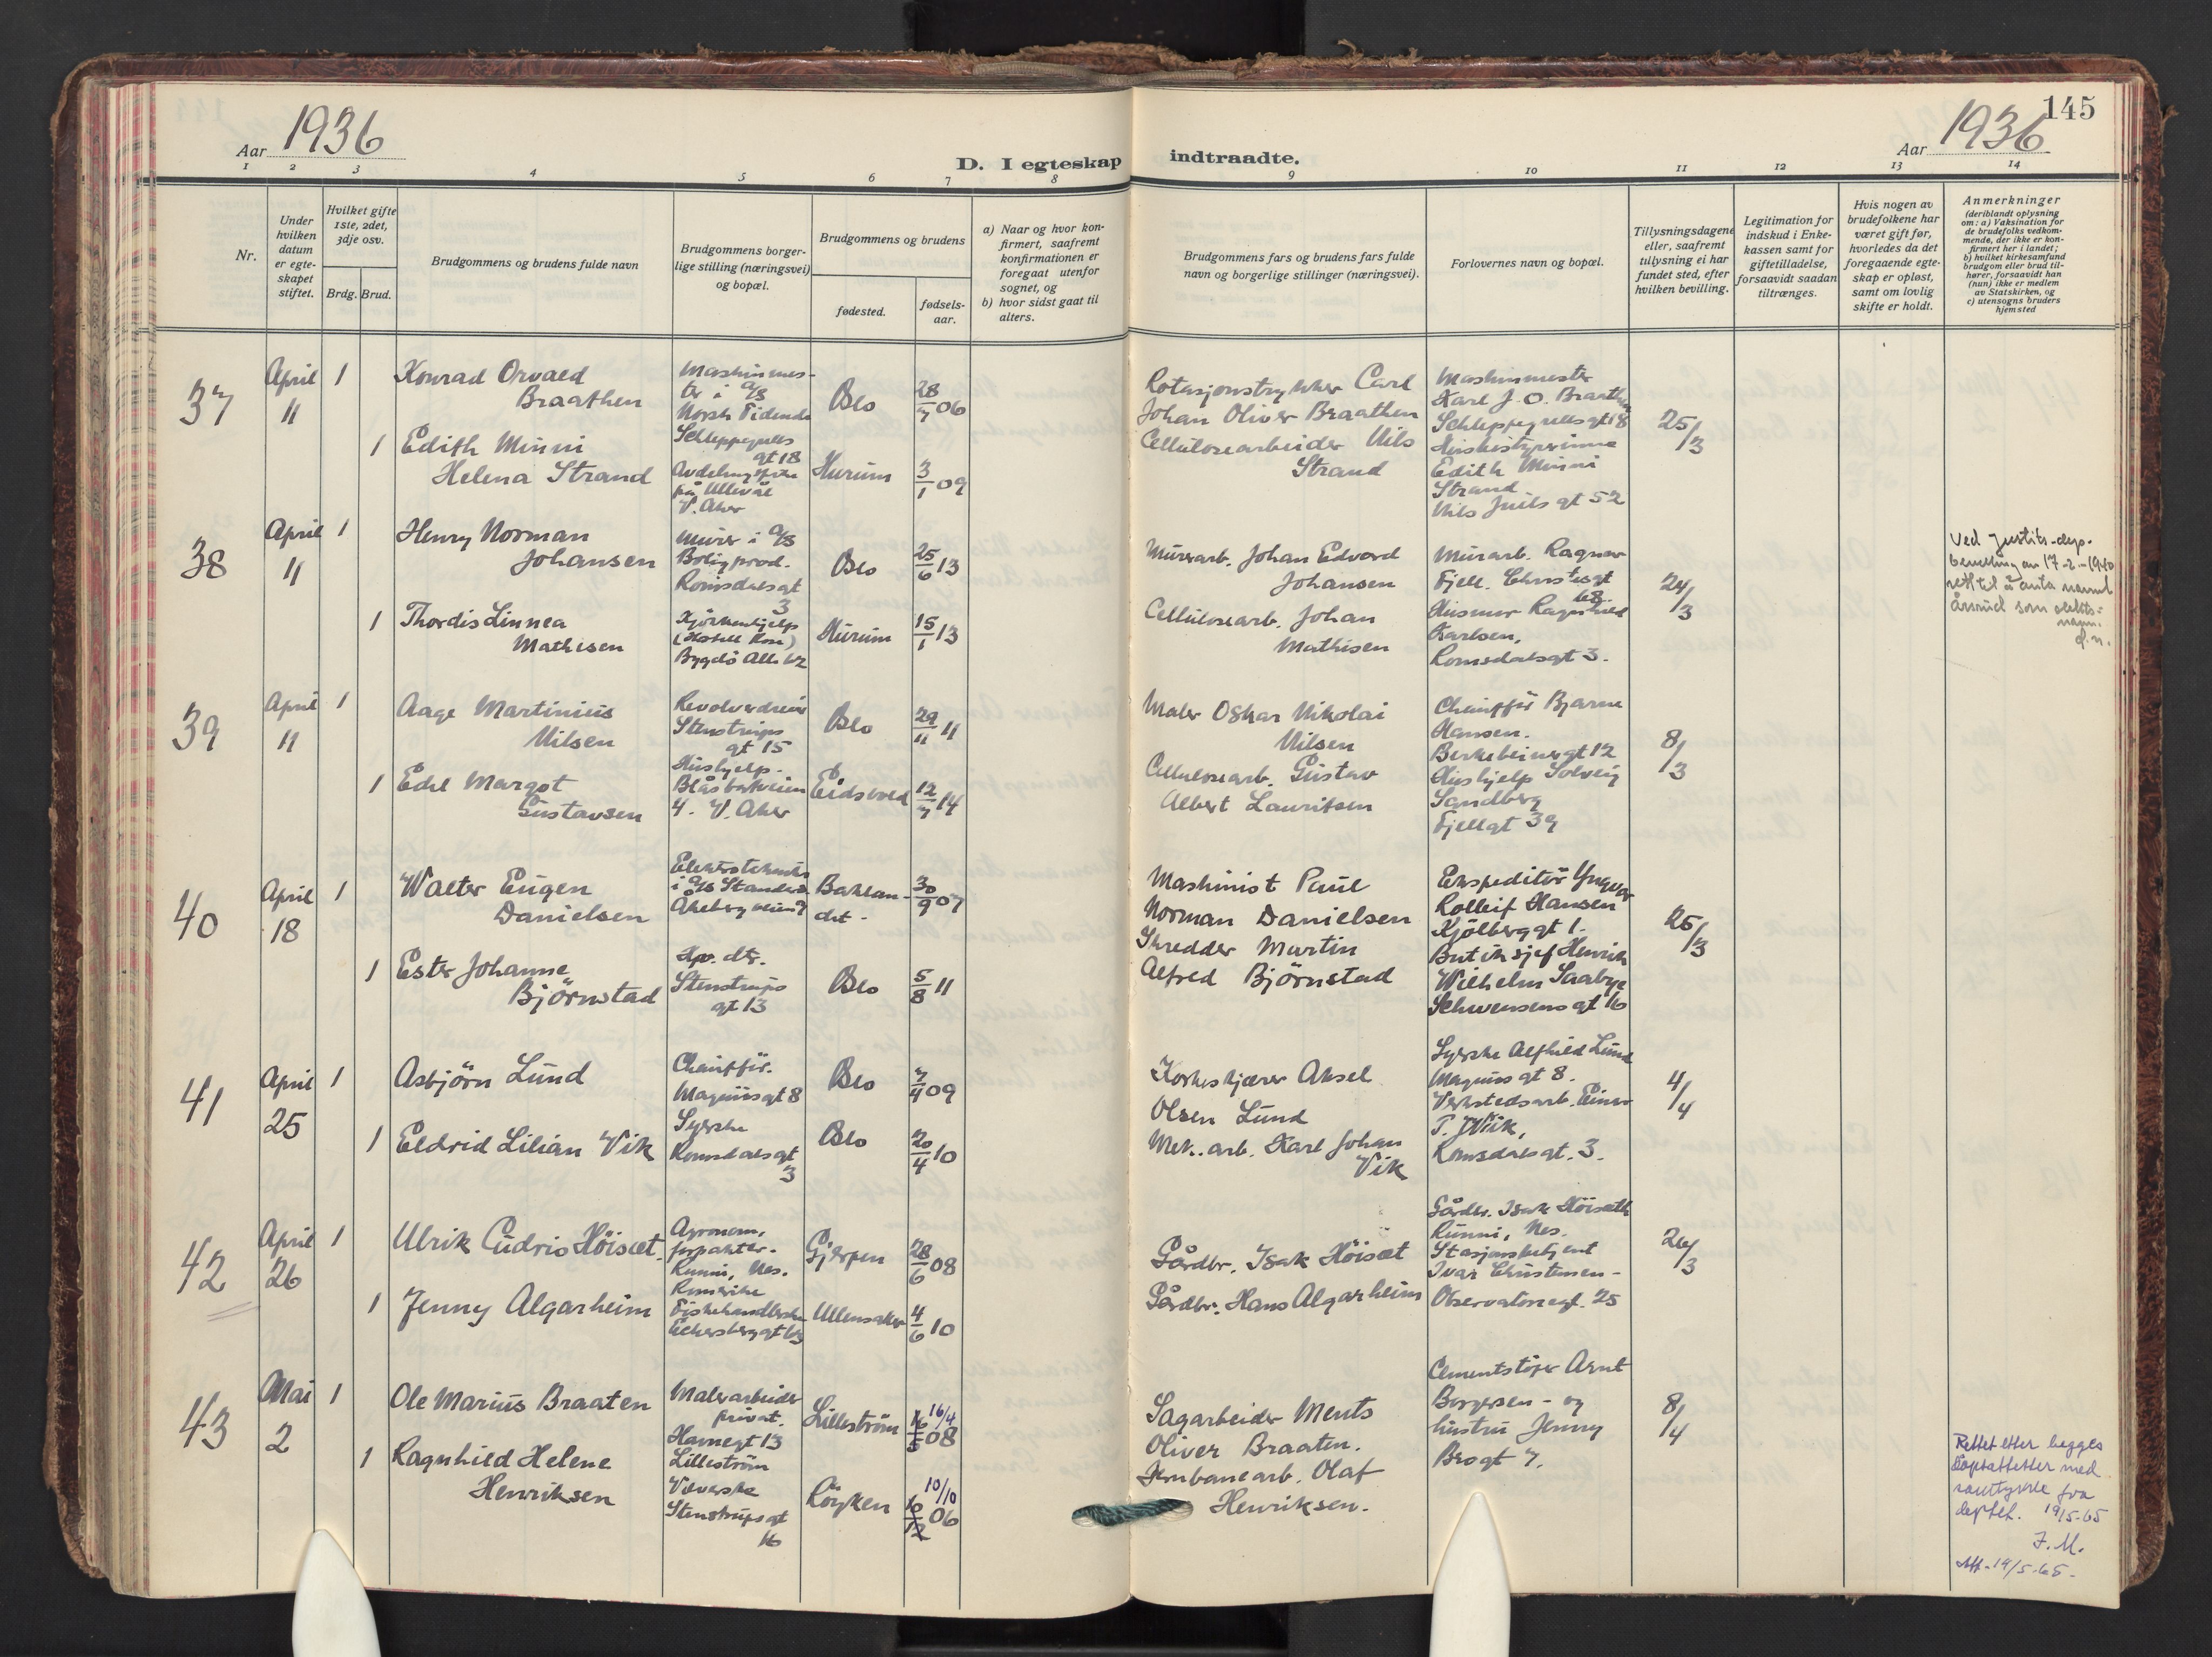 145
Aar 1936
Aar 1936
D. I egteskap indtraadte.
1 2 3 4 5 6 7 8 9 10 11 12 13 14
Nr.
Under
hvilken
datum
er egte-
skapet
stiftet.
Hvilket gifte
1ste, 2det,
3dje osv.
Brdg. Brud.
Brudgommens og brudens fulde navn
Brudgommens borger-
lige stilling (næringsvei)
og bopæl.
Brudgommens og brudens
fødested.
fødsels-
aar.
a) Naar og hvor kon-
firmert, saafremt
konfirmationen er
foregaat utenfor
sognet, og
b) hvor sidst gaat til
alters.
Brudgommens fars og brudens fars fulde
navn og borgerlige stillinger (næringsvei).
Forlovernes navn og bopæl.
Tillysningsdagene
eller, saafremt
tillysning ei har
fundet sted, efter
hvilken bevilling.
Legitimation for
indskud i Enke-
kassen samt for
giftetilladelse,
forsaavidt saadan
tiltrænges.
Hvis nogen av
brudefolkene har
været gift før,
hvorledes da det
foregaaende egte-
skap er opløst,
samt om lovlig
skifte er holdt.
Anmerkninger
(deriblandt oplysning
om: a) Vaksination for
de brudefolks vedkom-
mende, der ikke er kon-
firmert her i landet;
b) hvilket kirkesamfund
brudgom eller brud til-
hører, forsaavidt han
(hun) ikke er medlem
av Statskirken, og
c) utensogns bruders
hjemsted
37
April
11
1
Konrad Orvald
Braathen
Maskinmes-
ter i A/S
Norsk Tidende
Schleppegrells
gt 18
Oslo
28/7 06
Rotasjonstrykker Carl
Johan Oliver Braathen
Maskinmester
Karl J. O. Braathen
Schleppegrellsgt 18
25/3
1
Edith Minni
Helena Strand
på Ullevål
V. Aker
Hurum
3/1 09
Cellulosearbeider Nils
Strand
Edith Minni
Strand
Nils Juels gt 52
38
April
11
1
Henry Norman
Johansen
Murer i A/S
Boligprod.
Romsdalsgt
3
Oslo
25/6 13
Murerarb. Johan Edvard
Johansen
Murarb. Ragnar
Fjell. Christiesgt
24/3
1
Thordis Linnea
Mathisen
Kjøkkenhjelp
Bygdö Alle 62
Hurum
15/1 13
Cellulosearb. Johan
Mathisen
Husmor Ragnhild
Karlsen,
Romsdalsgt 3.
Ved Justits-dep.
bevilling av 17-2-1940
rett til å anta navnet
Årsrud som slekts-
navn.
39
April
11
1
Aage Martinius
Nilsen
Revolverdreier
Stenstrups
gt 15
Oslo
29/11 11
Maler Oskar Nikolai
Nilsen
Chauffør Bjarne
Hansen.
Berkebeinergt 12
8/3
1
Edel Margot
Gustavsen
Hushjelp.
Blåsbortveien
4. V. Aker
Eidsvold
12/7 14
Cellulosearb. Gustav
Albert Lauritsen
Hushjelp Solveig
Sandberg
Fjellgt 39
40
April
18
1
Walter Eugen
Danielsen
Elektrotekniker
i A/S Standard
Åkebergveien 7
Baklan-
det.
30/9 07
Maskinist Paul
Norman Danielsen
Ekspeditör Yngvar
Rolleif Hansen
Kjölberggt 1.
25/3
1
Ester Johanne
Björnstad
Stenstrups
gt 13
Oslo
5/8 11
Skredder Martin
Alfred Björnstad
Butiksjef Henrik
Wilhelm Saabye
Schwensens gt 16
41
April
25
1
Asbjörn Lund
Chauffør.
Magnusgt 8
Oslo
7/4 09
Korkeskjærer Aksel
Olsen Lund
Syerske Alfhild Lund
Magnus gt 8.
4/4
1
Eldrid Lilian Vik
Syerske
Romsdalsgt
3
Oslo
20/4 10
Mek. arb. Karl Johan
Vik
Verkstedsarb. Einar
T. Wiik,
Romsdalsgt. 3.
42
April
26
1
Ulrik Cudrio Höisæt
Agronom,
forpakter.
Runni, Nes.
Romerike
Gjerpen
28/6 08
Gårdbr. Isak Höisæt
Gårdbr. Isak Höisæth
Runni, Nes.
26/3
1
Jenny Algarheim
Fiskehandlerske
Eckersberggt 63
Ullensaker
4/6 10
Gårdbr. Hans Algarheim
Stasjonsbetjent
Ivar Christensen -
Observatoriegt. 25
43
Mai
2
1
Ole Marius Braaten
Malerarbeider
privat.
Havnegt 13
Lilleström
Lilleström
16/4
16/5 08
Sagarbeider Ments
Oliver Braaten.
Cementstöper Arnt
Borgersen - og
hustru Jenny
Brogt 7.
8/4
1
Ragnhild Helene
Henriksen
Væverske
Stenstrupsgt
16
Röyken
10/10
10/12 06
Jernbanearb. Olaf
Henriksen.
Rettet etter begges
dåpsattester med
samtykke fra
dep'tet. 19/5-65
J. M.
19/5-65.